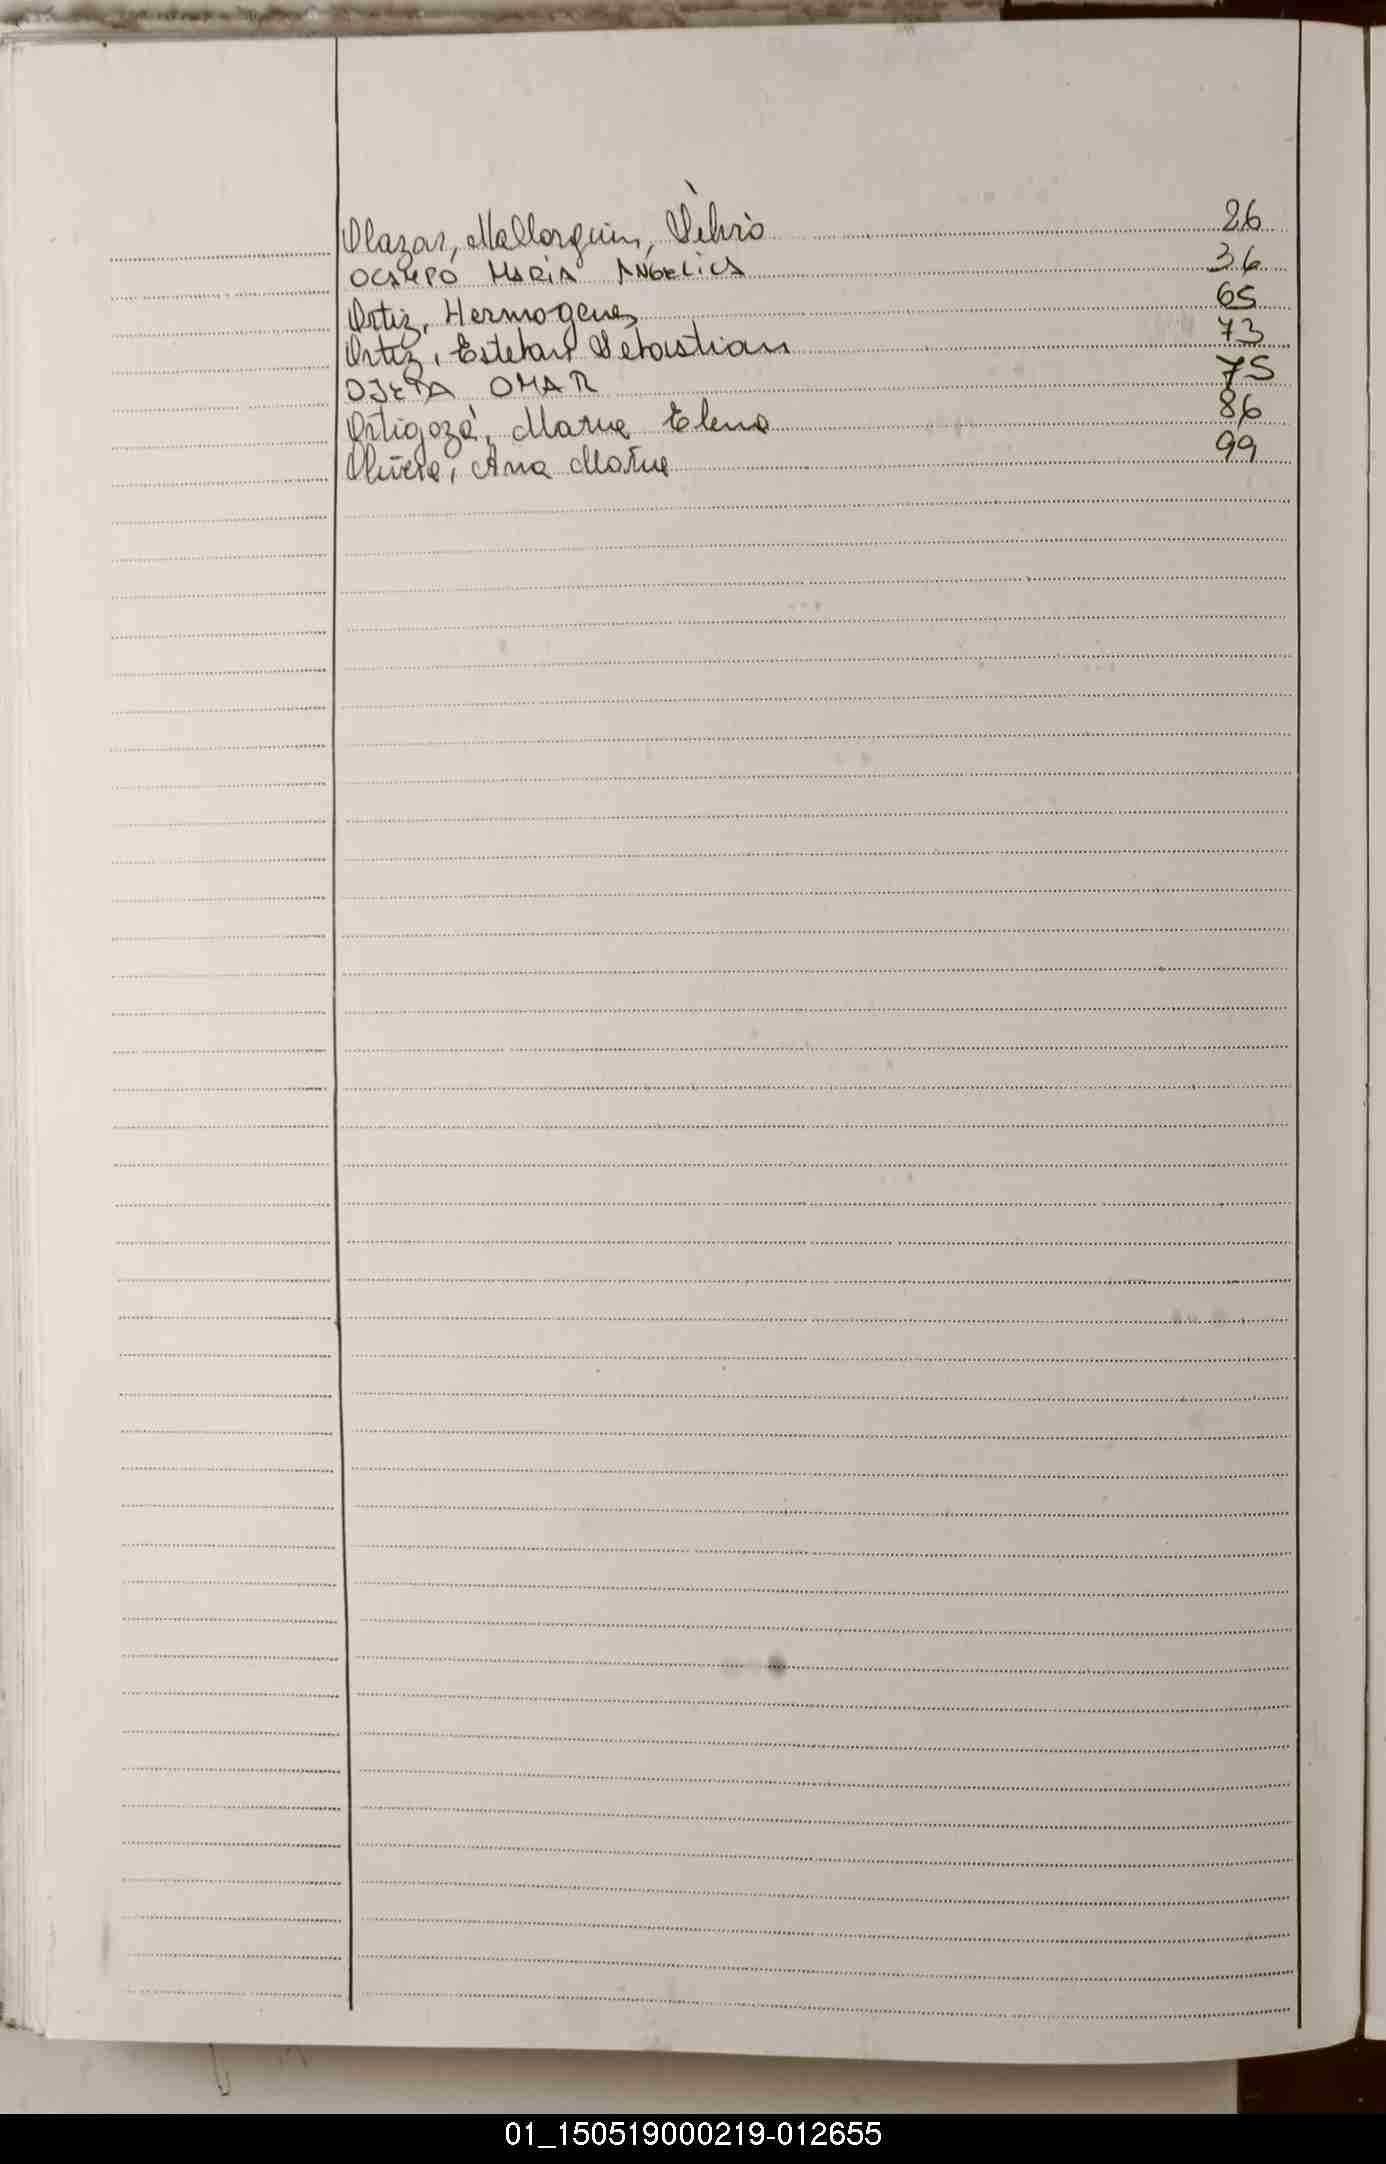 Olazar, Mallorquin, Silvio 26
OCAMPO MARIA ANGELICA 36
Ortiz, Hermogenes 65
Ortiz, Esteban Sebastian 73
OJEDA OMAR 75
Ortigoza, Maria Elena 86
Olivera, Ana Maria 99
01_150519000219-012655